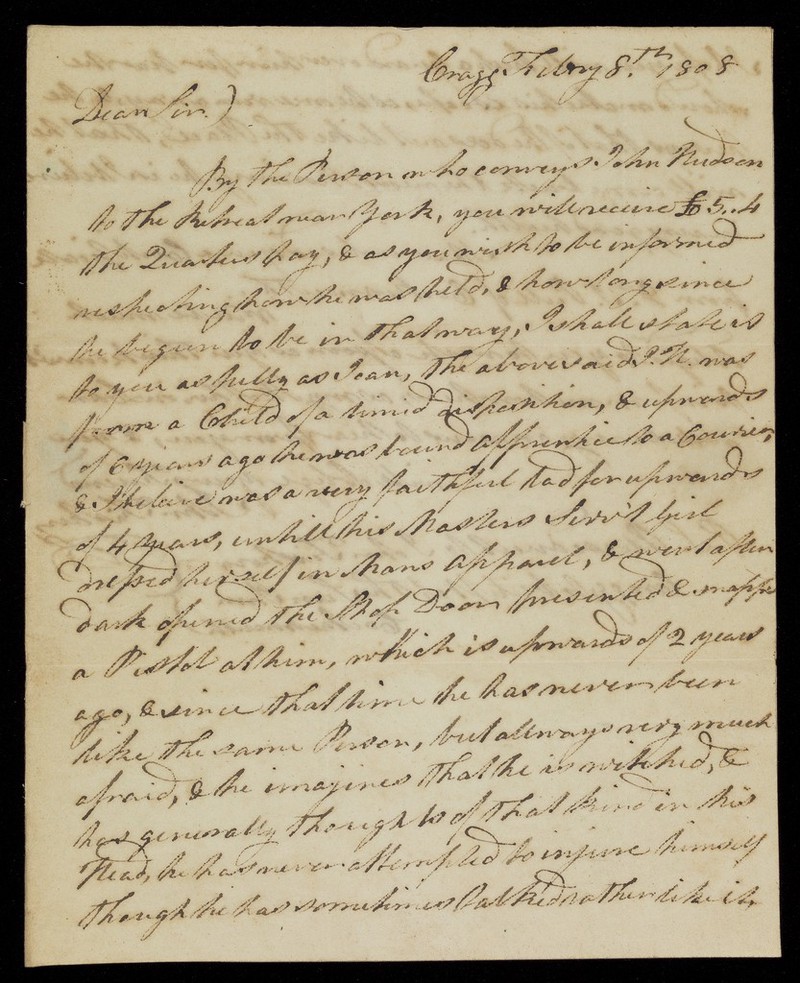 Cragg Febry 8.th 1808
Dear Sir.)
By the Person who conveys John Hudson
to the Retreat near York, you will receive £5..4
the Quarters pay, & as you wish to be informed
respecting how he was held, & how long since
he begun to be in that way, I shall state is
to you as fully as I can, the abovesaid J. H. was
from a Child of a timid disposition, & upwards
of 6 years ago he was bound apprentice to a Courier,
& I beleive was a very faithful lad for upwards
of 4 years, untill his Masters Serv't Girl
dressed herself in Mans apparel, & went after
dark opened the Shop Door presented & snapped
a Pistol at him, which is upwards of 2 years
ago, & since that time he has never been
like the same Person, but allways very much
afraid, & he imagines that he is witched, &
has generally thoughts of that kind in his
Head, he has never attempted to injure himself
though he has sometimes talked rather like it,